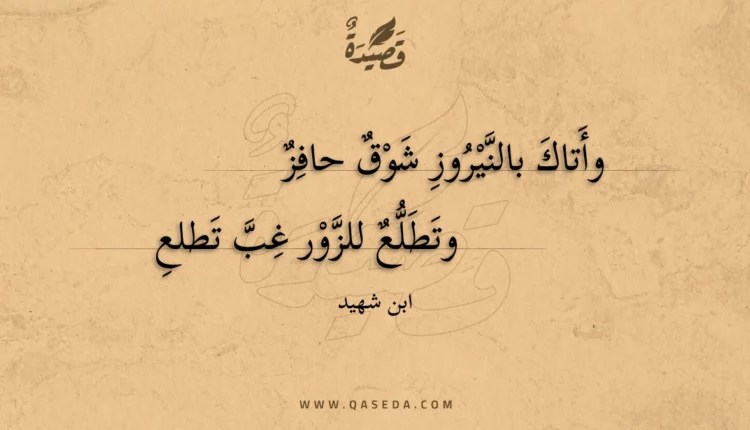 قَصِيْدَةٌ
وأَتاكَ بالنَّيْرُوزِ شَوْقٌ حافِزٌ
وتَطَلُّعٌ للزَّوْر غِبَّ تَطلعِ
ابن شهيد
WWW.QASEDA.COM